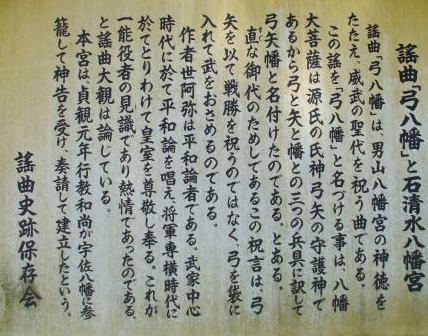 謡曲「弓八幡」と石清水八幡宮
謡曲「弓八幡」は、男山八幡宮の神徳を
たたえ、威武の聖代を祝う曲である。
この謡を「弓八幡」と名づける事は、八幡
大菩薩は源氏の氏神、弓矢の守護神で
あるから弓と矢と幡との三つの兵具に訳して
弓矢幡と名付けたのである。とある。
直な御代のためしであるこの祝言は、弓
矢を以て戦勝を祝うのではなく、弓を袋に
入れて武をおさめるのである。
作者世阿弥は平和論者である。武家中心
時代に於て平和論を唱え、将軍専横時代に
於てとりわけて皇室を尊敬し奉る。これが
一能役者の見識であり熱情であったのである、
と謡曲大観は論じている。
本宮は、貞観元年行教和尚が宇佐八幡に参
籠して神告を受け、奏請して建立したという。
謡曲史跡保存会